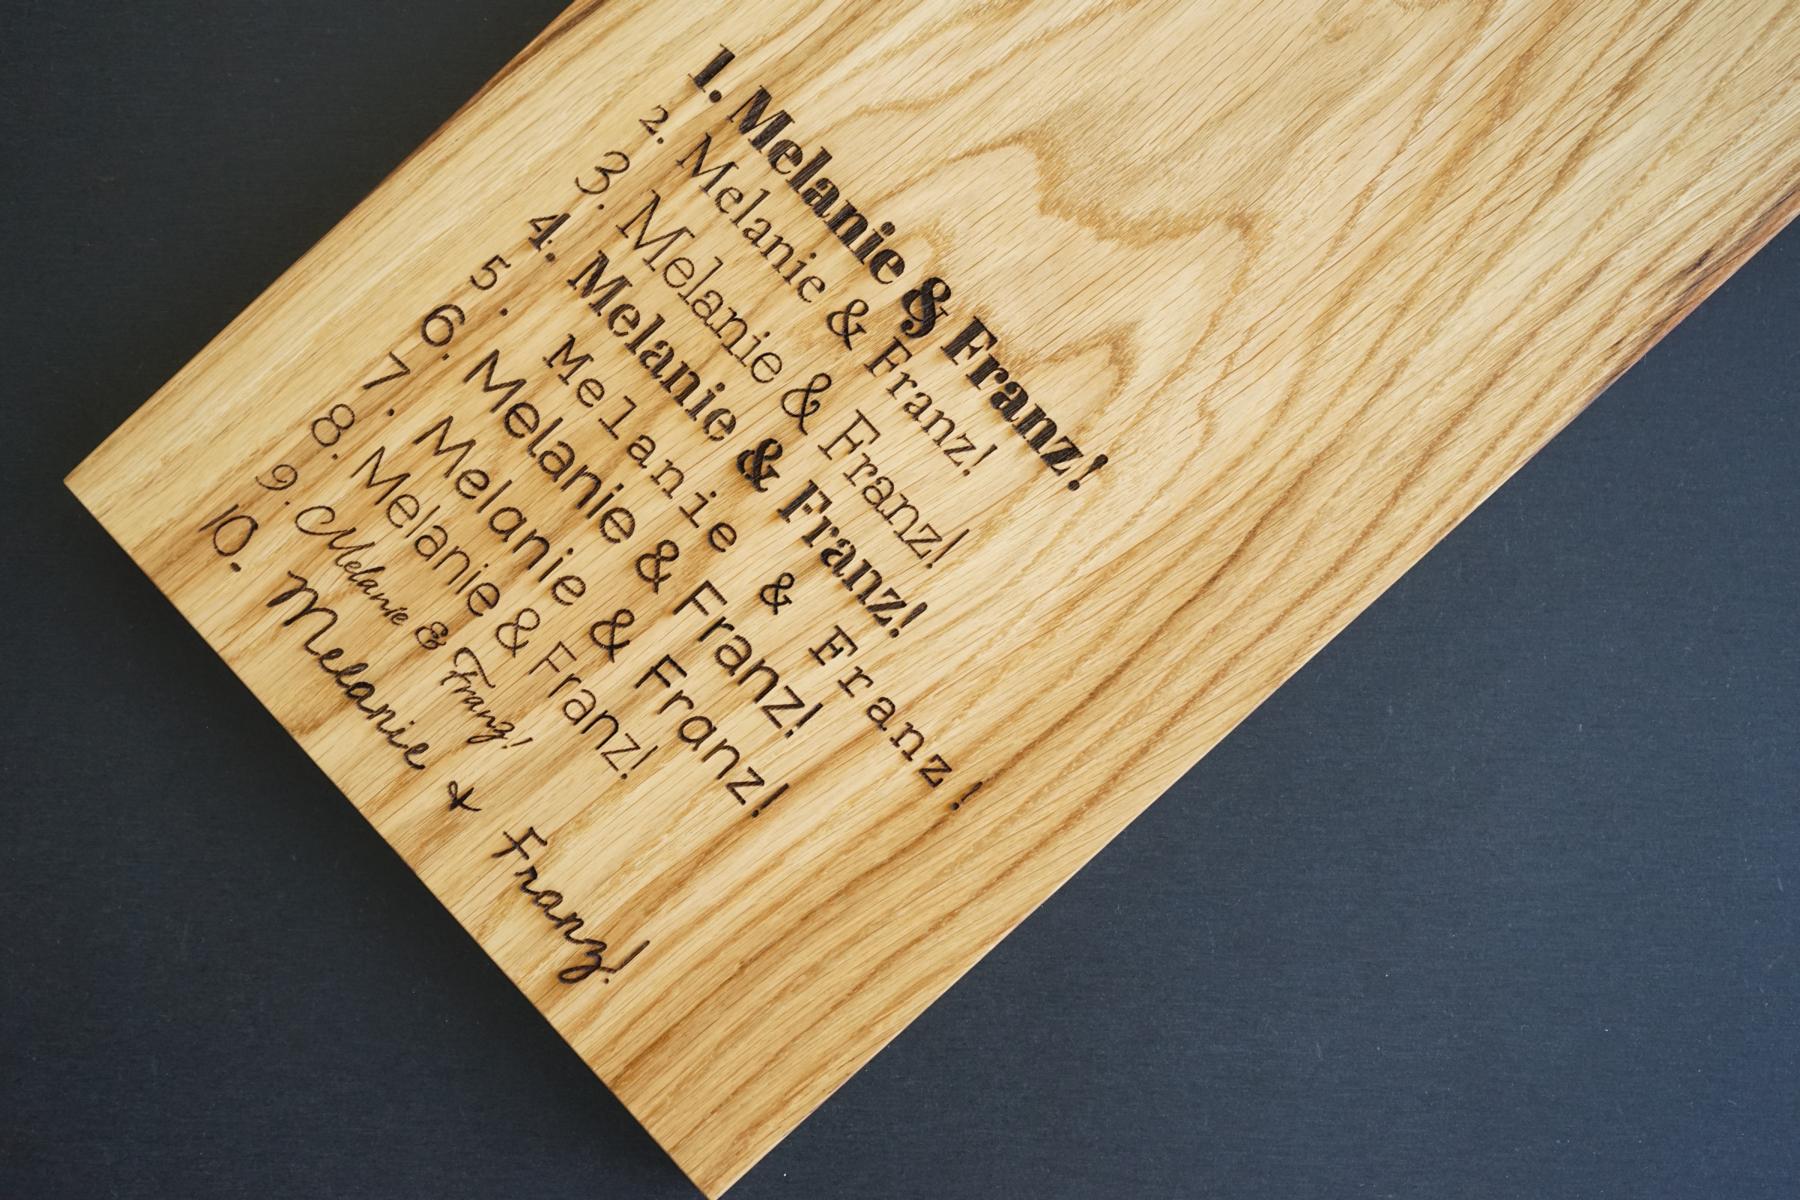 1. Melanie & Franz!
2. Melanie & Franz!
3. Melanie & Franz!
4. Melanie & Franz!
5. Melanie & Franz!
6. Melanie & Franz!
7. Melanie & Franz!
8. Melanie & Franz!
9. Melanie & Franz!
10. Melanie & Franz!